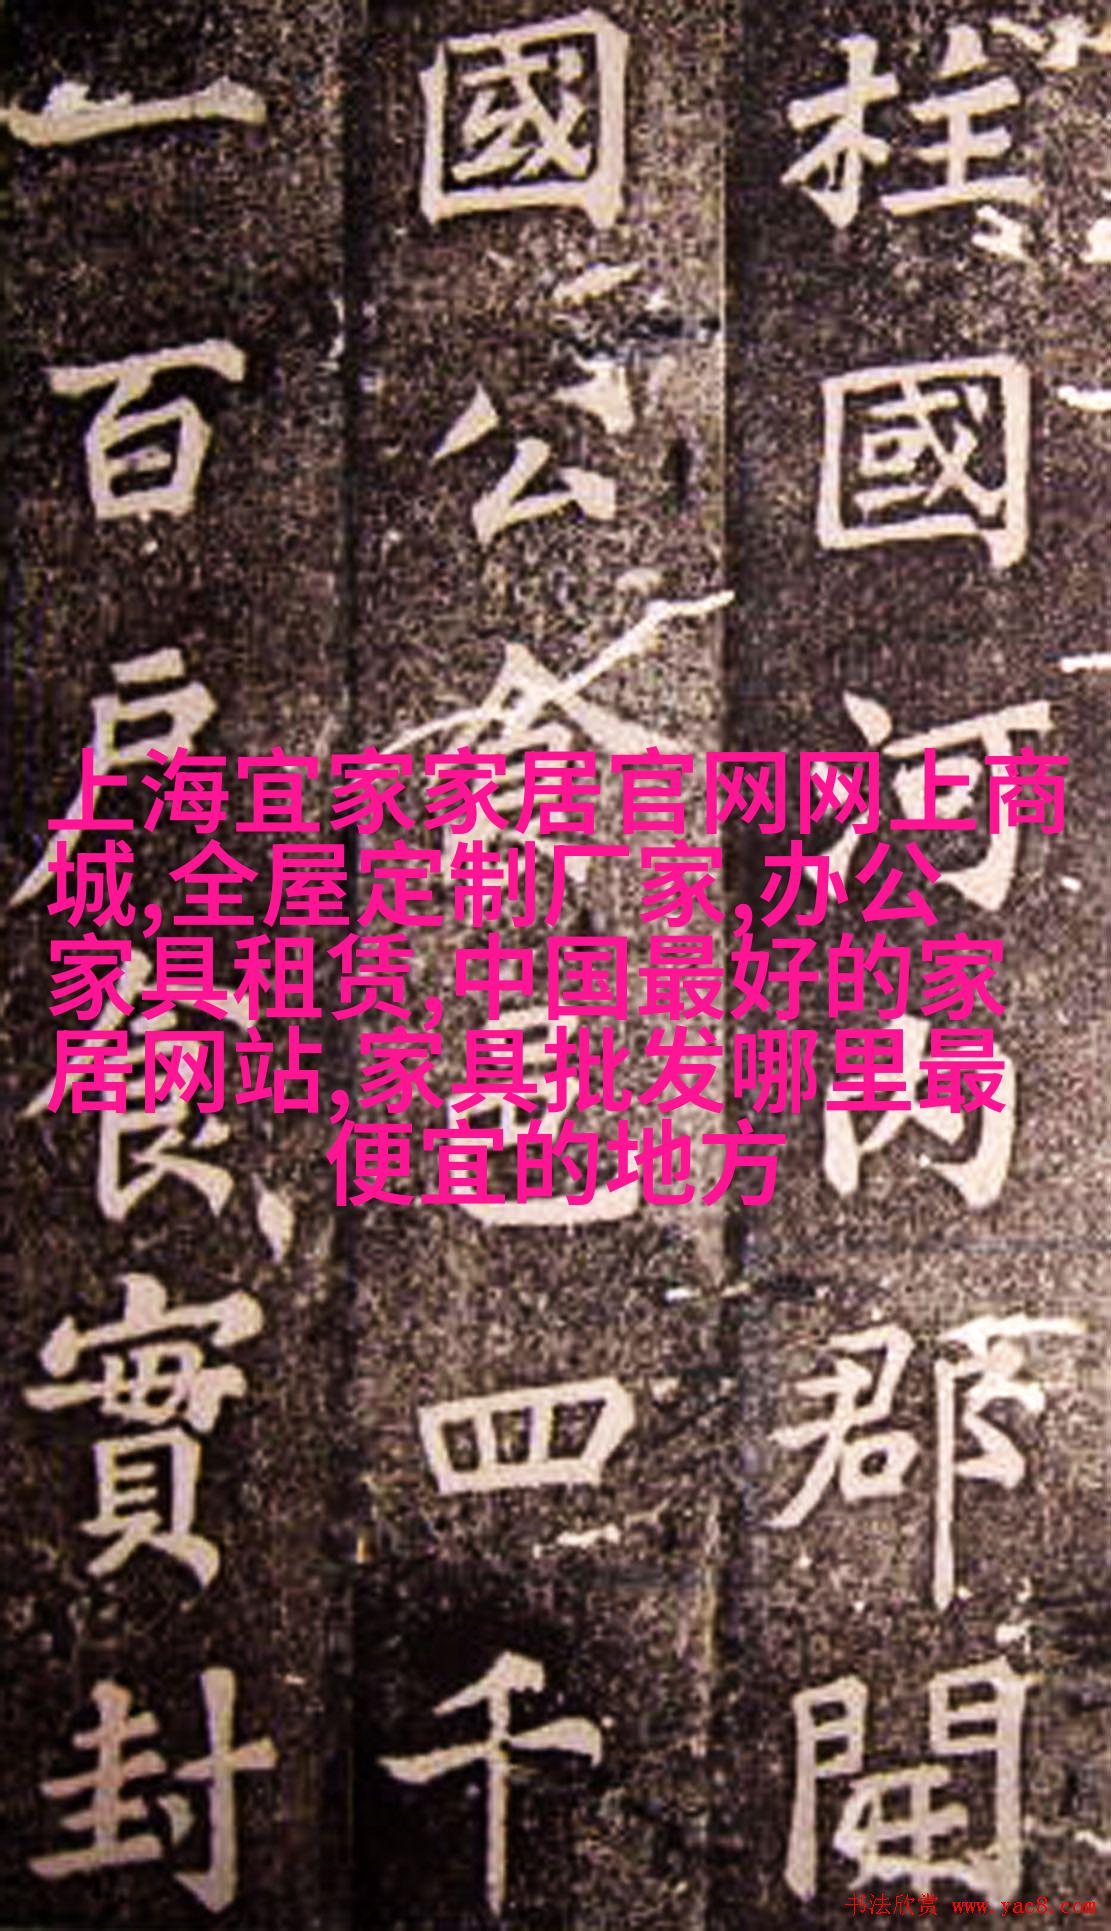 柱國河內郡開
國公食邑四千
一百戶食實封
上海宜家家居官网网上商
城,全屋定制厂家,办公
家具租赁,中国最好的家
居网站,家具批发哪里最
便宜的地方
书法欣赏 www.yac8.com